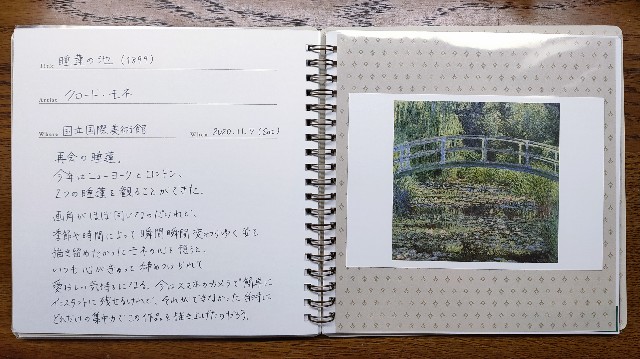 Title 睡蓮の池 (1899)
Artist クロード・モネ
Where 国立国際美術館 When 2020.11.7 (Sat)
再会の睡蓮。
今年はニューヨークとロンドン、
2つの睡蓮を観ることができた。
画角がほぼ同じなのだけれど、
季節や時間によって瞬間瞬間変わりゆく姿を
描き留めたかったモネの心を想うと、
いつも心がぎゅっと締めつけられて
愛おしい気持ちになる。今はスマホのカメラで簡単に
インスタントに残せるけれど、それができなかった当時に
どれだけの集中力でこの作品を描き上げたのだろう。